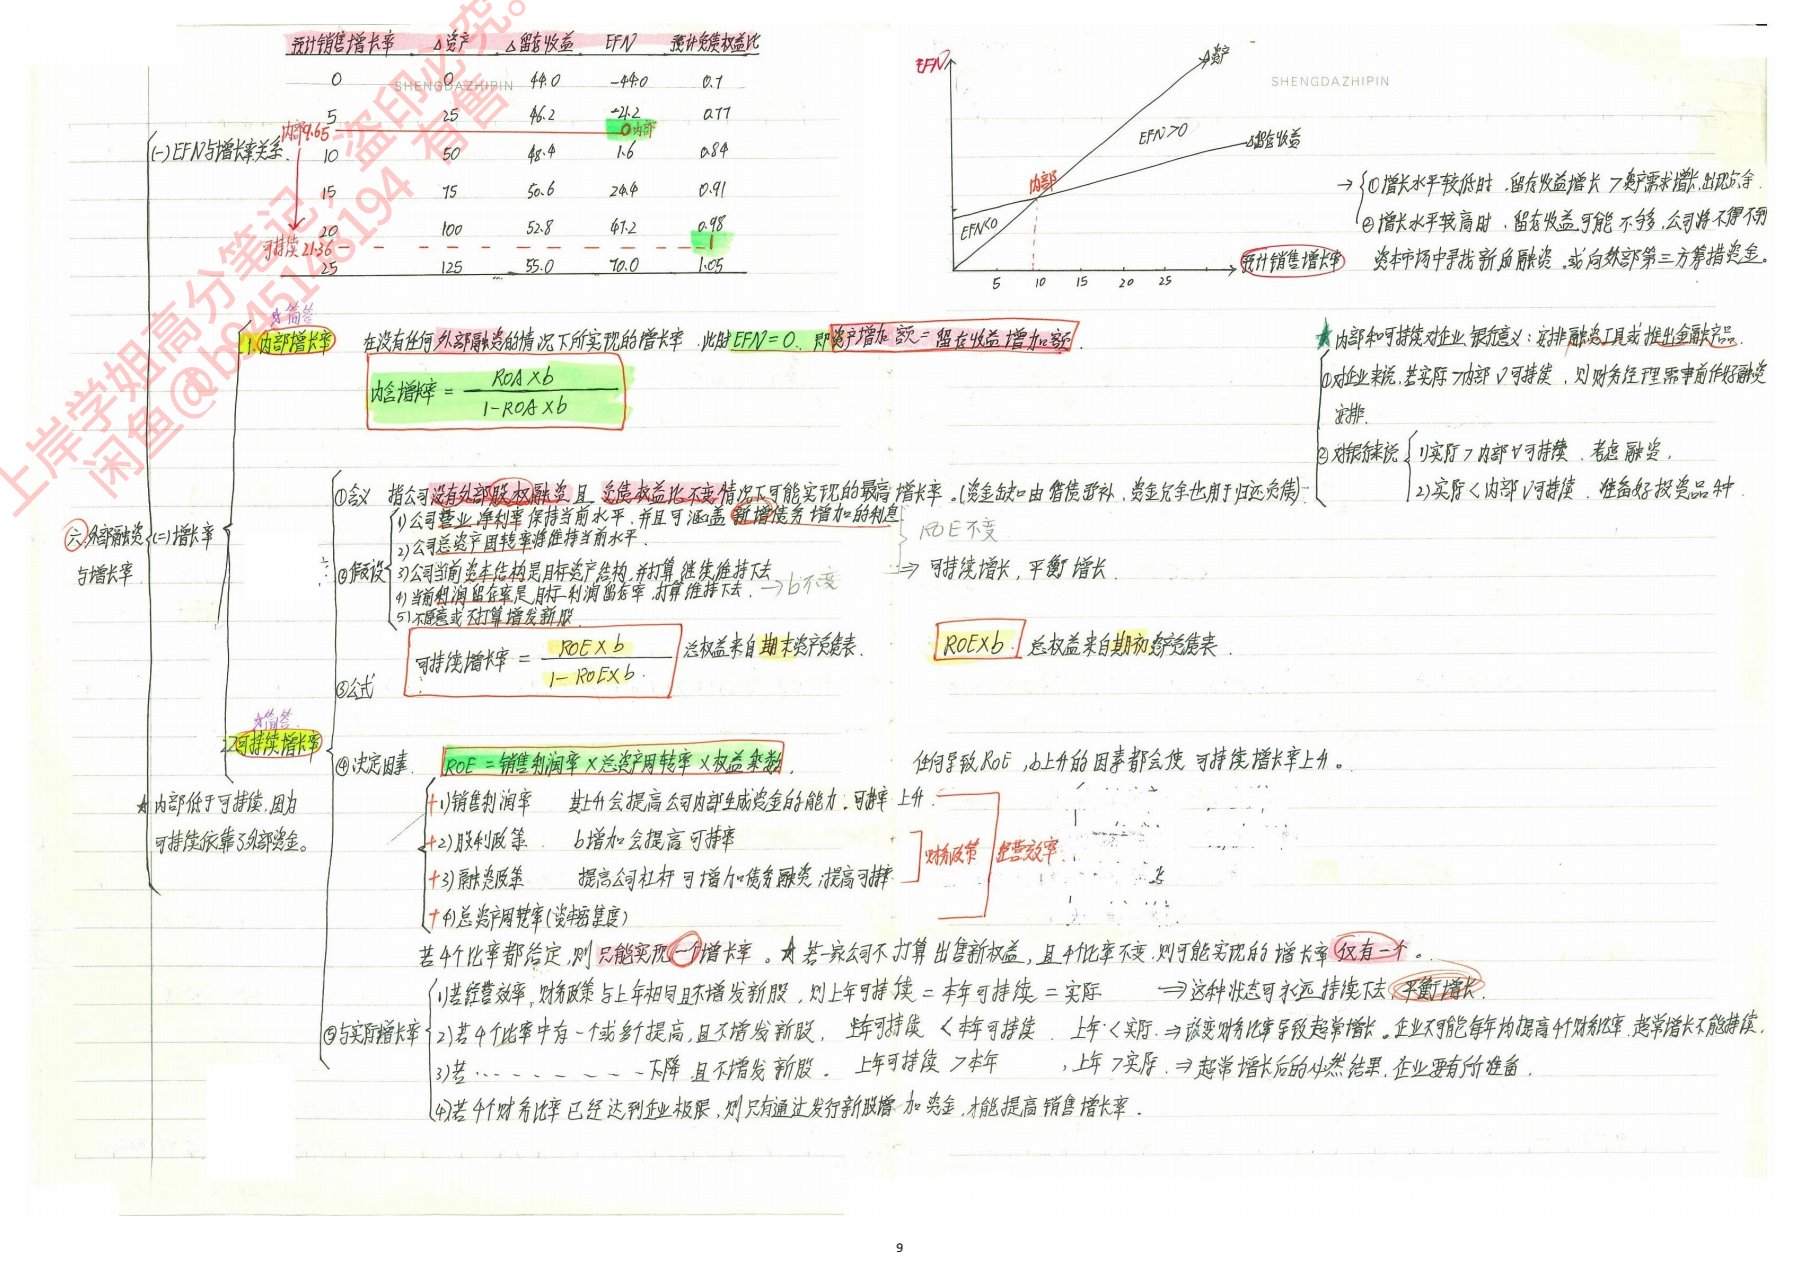 预计销售增长率 △资产 △留存收益 EFN 预计负债权益比
0 0 44.0 -44.0 0.7
5 25 46.2 -21.2 0.77
内部9.65 0内部
10 50 48.4 1.6 0.84
15 75 50.6 24.4 0.91
20 100 52.8 47.2 0.98
可持续21.36 1
25 125 55.0 70.0 1.05
SHENGDAZHIPIN
(一)EFN与增长率关系
EFN
△资产
SHENGDAZHIPIN
EFN>0
△留存收益
内部
EFN<0
5 10 15 20 25
预计销售增长率
→ ①增长水平较低时,留存收益增长>资产需求增长,出现冗余.
②增长水平较高时,留存收益可能不够多,公司将不得不到
资本市场中寻找新的融资。或向外部第三方筹措资金。
六、外部融资与增长率
(二)增长率
☆简答
1.内部增长率 在没有任何外部融资的情况下所实现的增长率.此时EFN=0.即资产增加额=留存收益增加额.
内含增长率 = ROA×b / 1-ROA×b
★内部和可持续对企业,银行意义:安排融资工具或推出金融产品.
①对企业来说,若实际>内部∨可持续,则财务经理需事前作好融资
安排.
②对银行来说 1)实际>内部∨可持续.考虑融资.
2)实际<内部∨可持续.准备好投资品种.
☆简答.
2.可持续增长率
①含义 指公司没有外部股权融资且负债权益比不变情况下可能实现的最高增长率.(资金缺口由借债弥补,资金冗余也用于归还负债)
②假设 1)公司营业净利率保持当前水平,并且可涵盖新增债务增加的利息
2)公司总资产周转率将维持当前水平.
ROE不变
3)公司当前资本结构是目标资产结构,并打算继续维持下去
⇒ 可持续增长,平衡增长.
4)当前利润留存率是目标利润留存率,打算维持下去. →b不变
5)不愿意或不打算增发新股.
③公式 可持续增长率 = ROE×b / 1-ROE×b. 总权益来自期末资产负债表.
ROE×b. 总权益来自期初资产负债表.
④决定因素. ROE=销售利润率×总资产周转率×权益乘数. 任何导致ROE,b上升的因素都会使可持续增长率上升。
+1)销售利润率 其上升会提高公司内部生成资金的能力.可持率上升.
+2)股利政策 b增加会提高可持率
+3)融资政策 提高公司杠杆可增加债务融资,提高可持率
+4)总资产周转率(资本密集度)
财务政策
经营效率.
★内部低于可持续,因为
可持续依靠了外部资金。
若4个比率都给定,则只能实现一个增长率。★若一家公司不打算出售新权益,且4个比率不变,则可能实现的增长率仅有一个。
⑤与实际增长率 1)若经营效率,财务政策与上年相同且不增发新股,则上年可持续=本年可持续=实际 ⇒这种状态可永远持续下去 平衡增长.
2)若4个比率中有一个或多个提高,且不增发新股, 上年可持续<本年可持续 上年<实际 ⇒改变财务比率导致超常增长。企业不可能每年均提高4个财务比率,超常增长不能持续.
3)若………下降 且不增发新股。 上年可持续>本年 ,上年>实际. ⇒超常增长后的必然结果.企业要有所准备.
4)若4个财务比率已经达到企业极限,则只有通过发行新股增加资金,才能提高销售增长率.
上岸学姐高分笔记,盗印必究。
闲鱼@b9451483194 有售
9